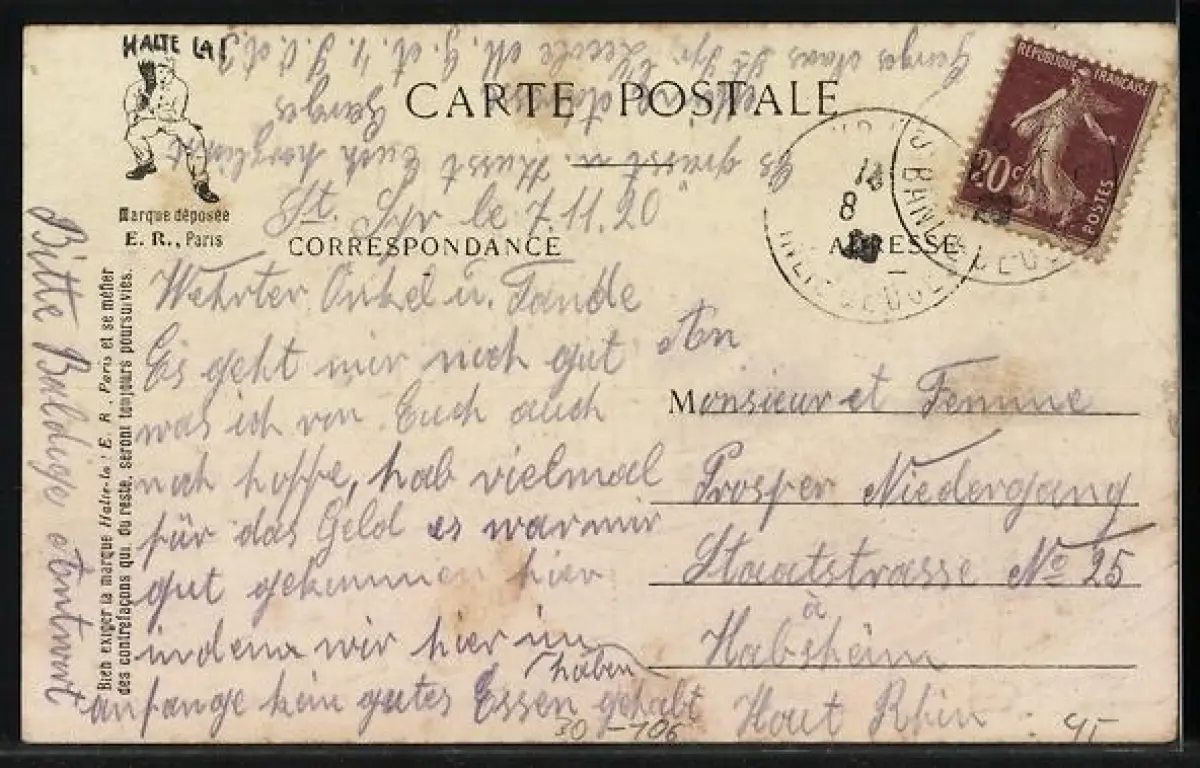 HALTE LA!
Marque déposée
E. R., Paris
Bien exiger la marque Halte-là! E. R. Paris et se méfier
des contrefaçons qui, du reste, seront toujours poursuivies.
CARTE POSTALE
CORRESPONDANCE
ADRESSE
REPUBLIQUE FRANÇAISE
20c
POSTES
St. Syr le 7.11.20
Wehrter Onkel u. Tande
Es geht mir noch gut
was ich von Euch auch
noch hoffe, hab vielmal
für das Geld es war mir
gut gekommen hier
indem wir hier im
anfange kein gutes Essen gehabt
haben
Es grüsst u. Küsst Euch herzlichst
Georges
Bitte Baldige Antwort
An
Monsieur et Femme
Prosper Niedergang
Staatstrasse No 25
à
Habsheim
Haut Rhin
30-106
45